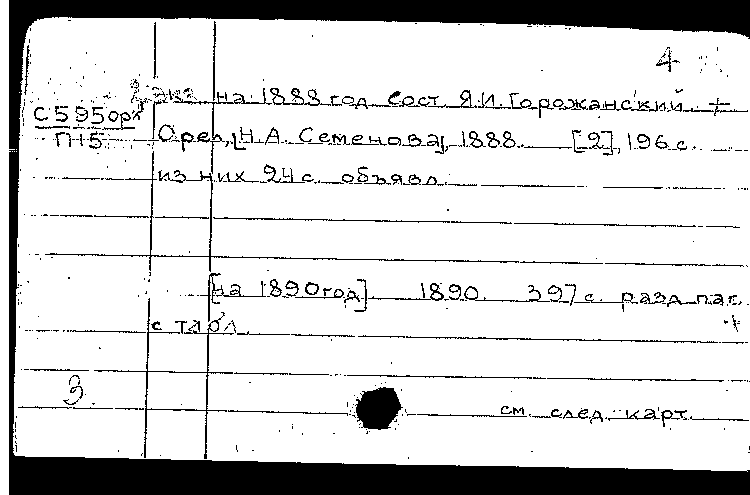 4
2 экз. на 1888 год. Сост. Я.И. Горожанский. +
С595орл
П15
Орел, [Н.А. Семенова], 1888. [2], 196 с.
из них 24 с. объявл.
[на 1890 год]. 1890. 397 с. разд. паг.
с табл. +
3.
см. след. карт.